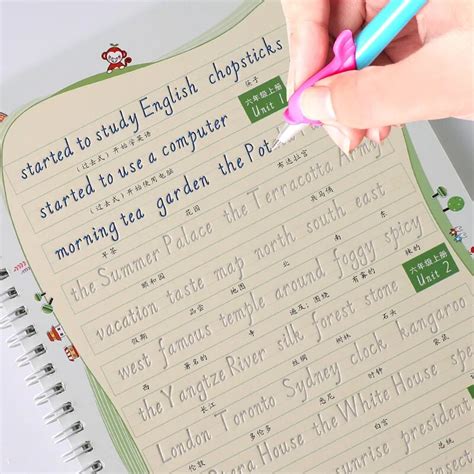 started to study English chopsticks
(过去式)开始学英语 筷子
六年级上册
Unit 1
started to use a computer
(过去式)开始使用电脑
morning tea garden the Pot
早茶 花园 布达拉宫
the Summer Palace the Terracotta Army
颐和园 兵马俑
vacation taste map north south east
假期 品尝 地图 北 南 东
west famous temple around foggy spicy
西 著名的 寺 遍及;围绕 有雾的 辣的
六年级上册
Unit 2
the Yangtze River silk forest stone
长江 丝绸 树林 石头
London Toronto Sydney clock kangaroo
伦敦 多伦多 悉尼 时钟 袋鼠
Opera House the White House
sunrise president